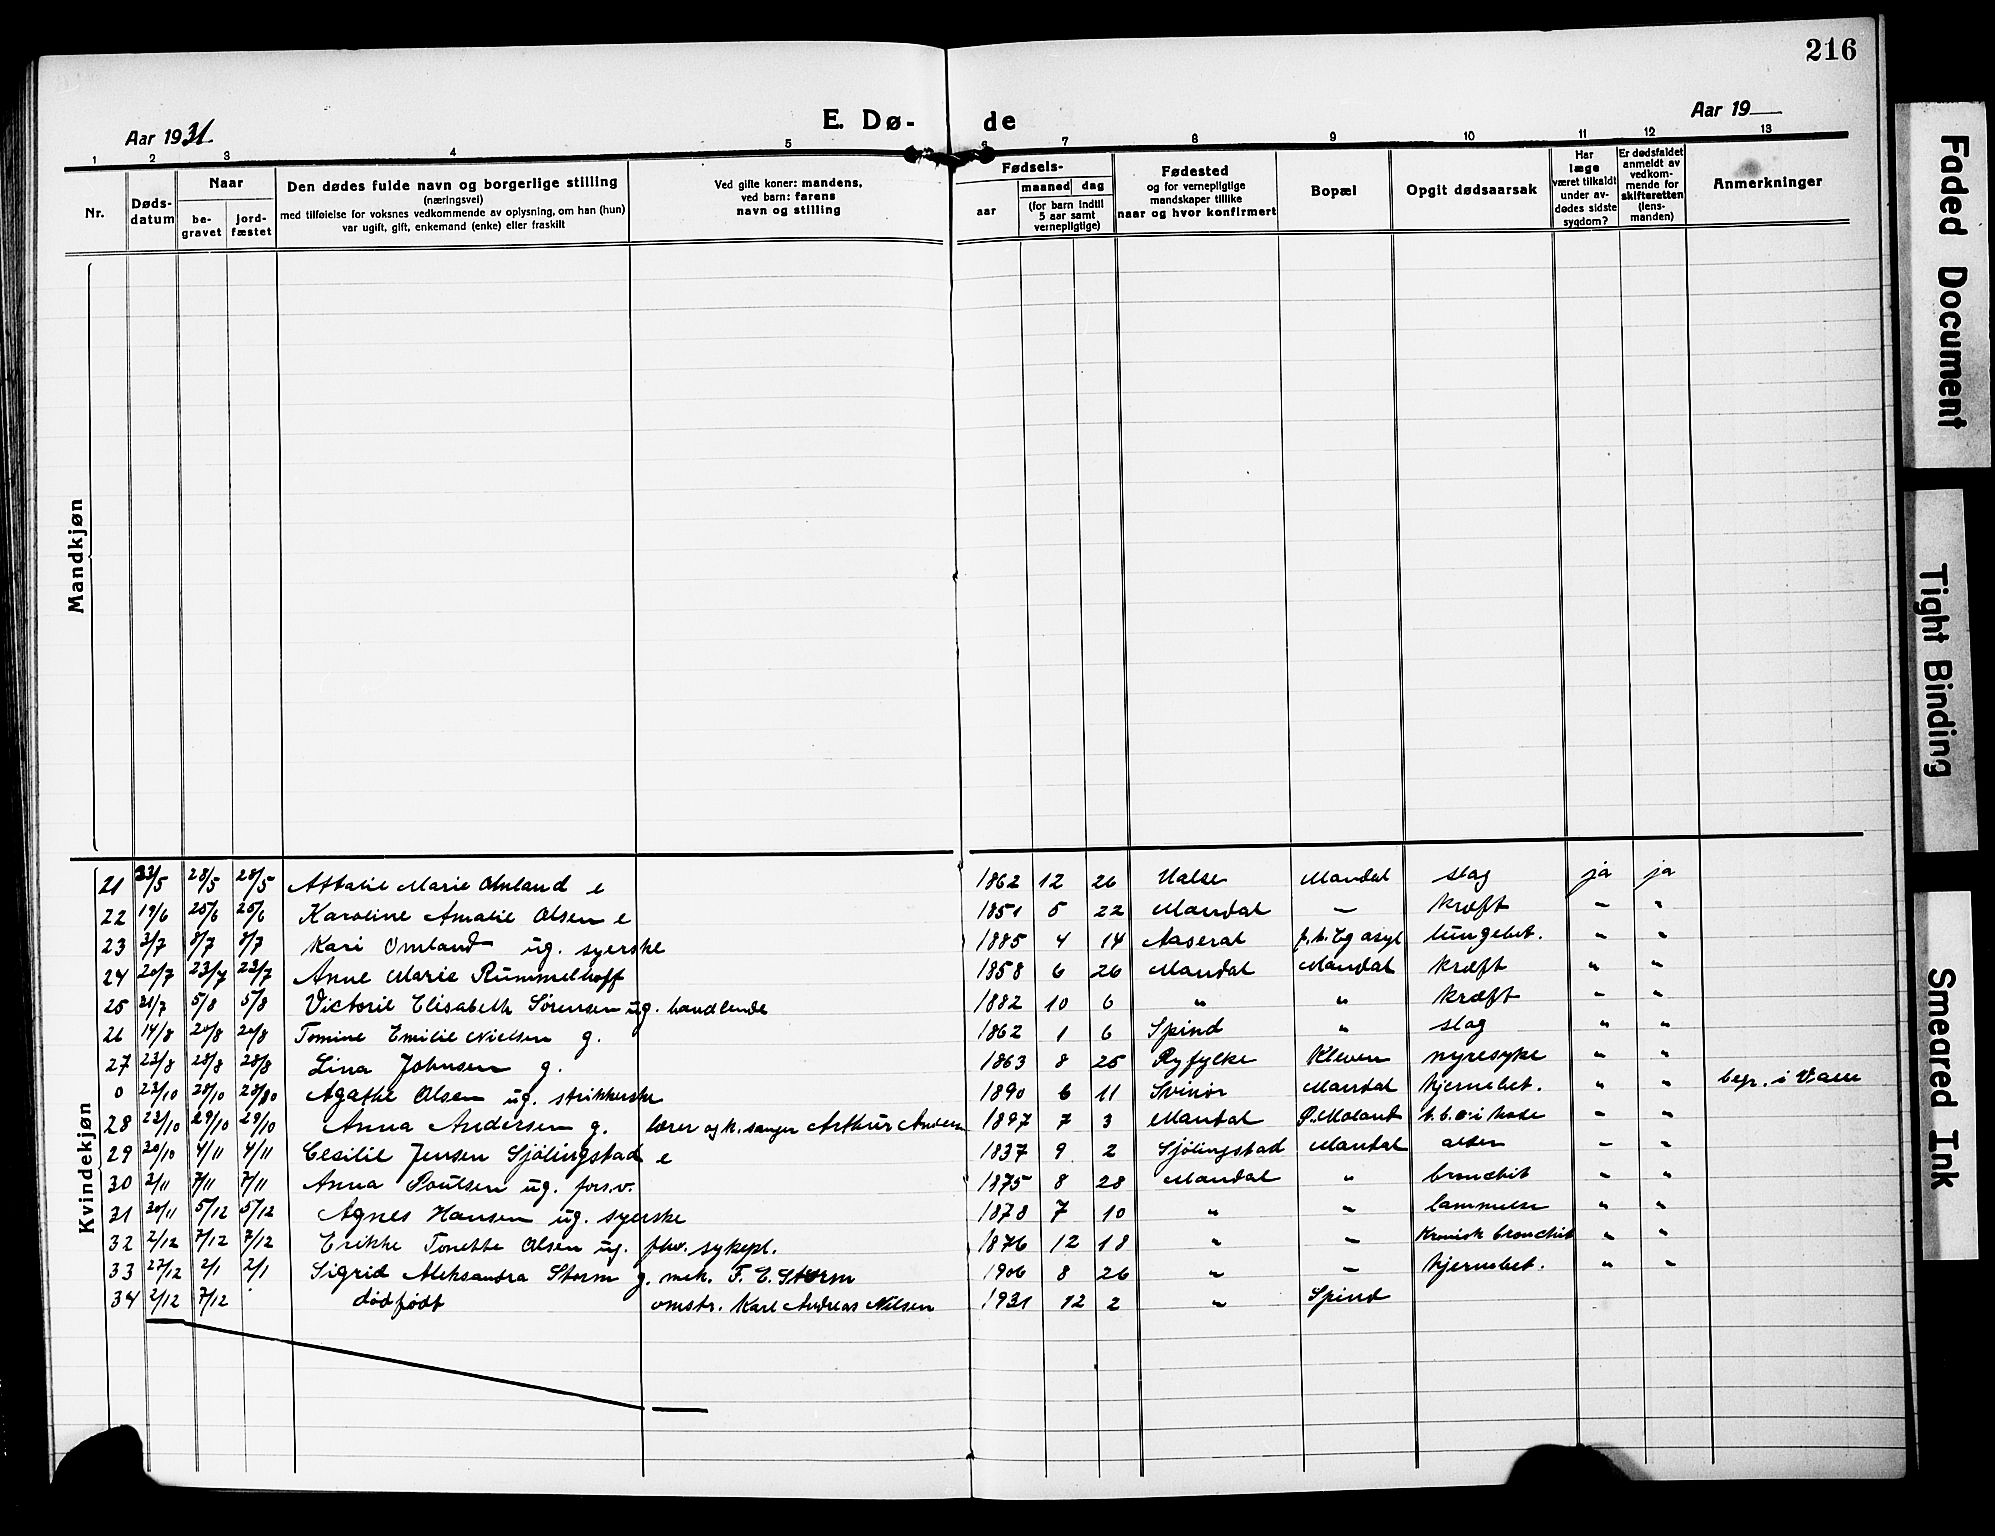 216
Aar 1931
E. Dø-
de
Aar 19
1 2 3 4 5 6 7 8 9 10 11 12 13
Nr.
Døds-
datum
Naar
be-
gravet
jord-
fæstet
Den dødes fulde navn og borgerlige stilling
(næringsvei)
med tilføielse for voksnes vedkommende av oplysning, om han (hun)
var ugift, gift, enkemand (enke) eller fraskilt
Ved gifte koner: mandens,
ved barn: farens
navn og stilling
Fødsels-
aar
maaned dag
(for barn indtil
5 aar samt
vernepligtige)
Fødested
og for vernepligtige
mandskaper tillike
naar og hvor konfirmert
Bopæl
Opgit dødsaarsak
Har
læge
været tilkaldt
under av-
dødes sidste
sygdom?
Er dødsfaldet
anmeldt av
vedkom-
mende for
skifteretten
(lens-
manden)
Anmerkninger
Mandkjøn
Kvindekjøn
21 23/5 28/5 28/5 Attalie Marie Omland e 1862 12 26 Halse Mandal slag ja ja
22 19/6 25/6 25/6 Karoline Amalie Olsen e 1851 5 22 Mandal — kræft " "
23 3/7 8/7 8/7 Kari Omland ug. syerske 1885 4 14 Aaseral f. t. Eg asyl lungebet. " "
24 20/7 23/7 23/7 Anne Marie Rummelhoff 1858 6 26 Mandal Mandal kræft " "
25 31/7 5/8 5/8 Victorie Elisabeth Sørensen ug. handlende 1882 10 6 " " kræft " "
26 14/8 20/8 20/8 Tomine Emilie Nielsen g. 1862 1 6 Spind " slag " "
27 23/8 28/8 28/8 Lina Johnsen g. 1863 8 25 Ryfylke Kleven nyresyke " "
0 23/10 28/10 28/10 Agathe Olsen ug. strikkerske 1890 6 11 Svinør Mandal hjernebet. " " begr. i Valle
28 23/10 29/10 29/10 Anna Andersen g. lærer og k. sanger Arthur Andersen 1897 7 3 Mandal Ø. Moland " "
29 30/10 4/11 4/11 Cecilie Jensen Sjölingstad e 1837 9 2 Sjölingstad Mandal alder " "
30 2/11 7/11 7/11 Anna Poulsen ug. fors.v. 1875 8 28 Mandal " bronchit " "
31 30/11 5/12 5/12 Agnes Hansen ug. syerske 1878 7 10 " " lammelse " "
32 2/12 7/12 7/12 Erikke Tonette Olsen ug. fhv. sykepl. 1876 12 18 " " Kronisk bronchit " "
33 27/12 2/1 2/1 Sigrid Aleksandra Storm g. mek. F. E. Storm 1906 8 26 " " hjernebet. " "
34 2/12 7/12 dødfødt omstr. Karl Andreas Nilsen 1931 12 2 " Spind
Faded Document
Tight Binding
Smeared Ink